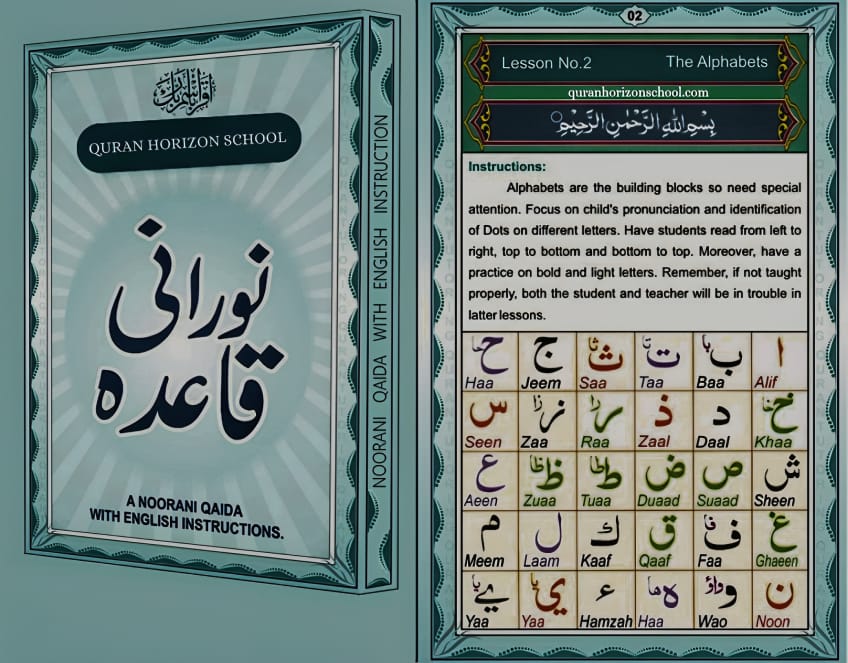 QURAN HORIZON SCHOOL
نورانی
قاعدہ
A NOORANI QAIDA
WITH ENGLISH INSTRUCTIONS.
NOORANI QAIDA WITH ENGLISH INSTRUCTION
02
Lesson No.2 The Alphabets
quranhorizonschool.com
بِسْمِ اللّٰهِ الرَّحْمٰنِ الرَّحِيْمِ
Instructions:
Alphabets are the building blocks so need special
attention. Focus on child's pronunciation and identification
of Dots on different letters. Have students read from left to
right, top to bottom and bottom to top. Moreover, have a
practice on bold and light letters. Remember, if not taught
properly, both the student and teacher will be in trouble in
latter lessons.
ا ب با ت تا ث ثا ج ح حا
Haa Jeem Saa Taa Baa Alif
خ خا د ذ ر را ز زا س
Seen Zaa Raa Zaal Daal Khaa
ش ص ض ط طا ظ ظا ع
Aeen Zuaa Tuaa Duaad Suaad Sheen
غ ف فا ق ك ل م
Meem Laam Kaaf Qaaf Faa Ghaeen
ن و واؤ ه ها ء ي یا ے یا
Yaa Yaa Hamzah Haa Wao Noon